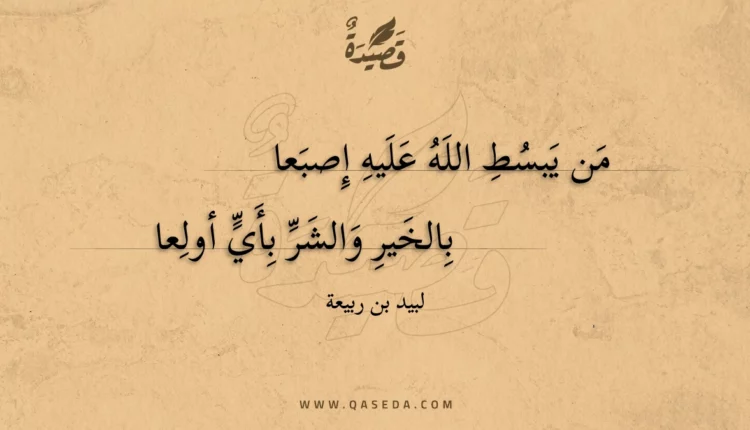 قَصِيْدَةٌ
مَن يَبسُطِ اللَهُ عَلَيهِ إِصبَعا
بِالخَيرِ وَالشَرِّ بِأَيٍّ أولِعا
لبيد بن ربيعة
WWW.QASEDA.COM